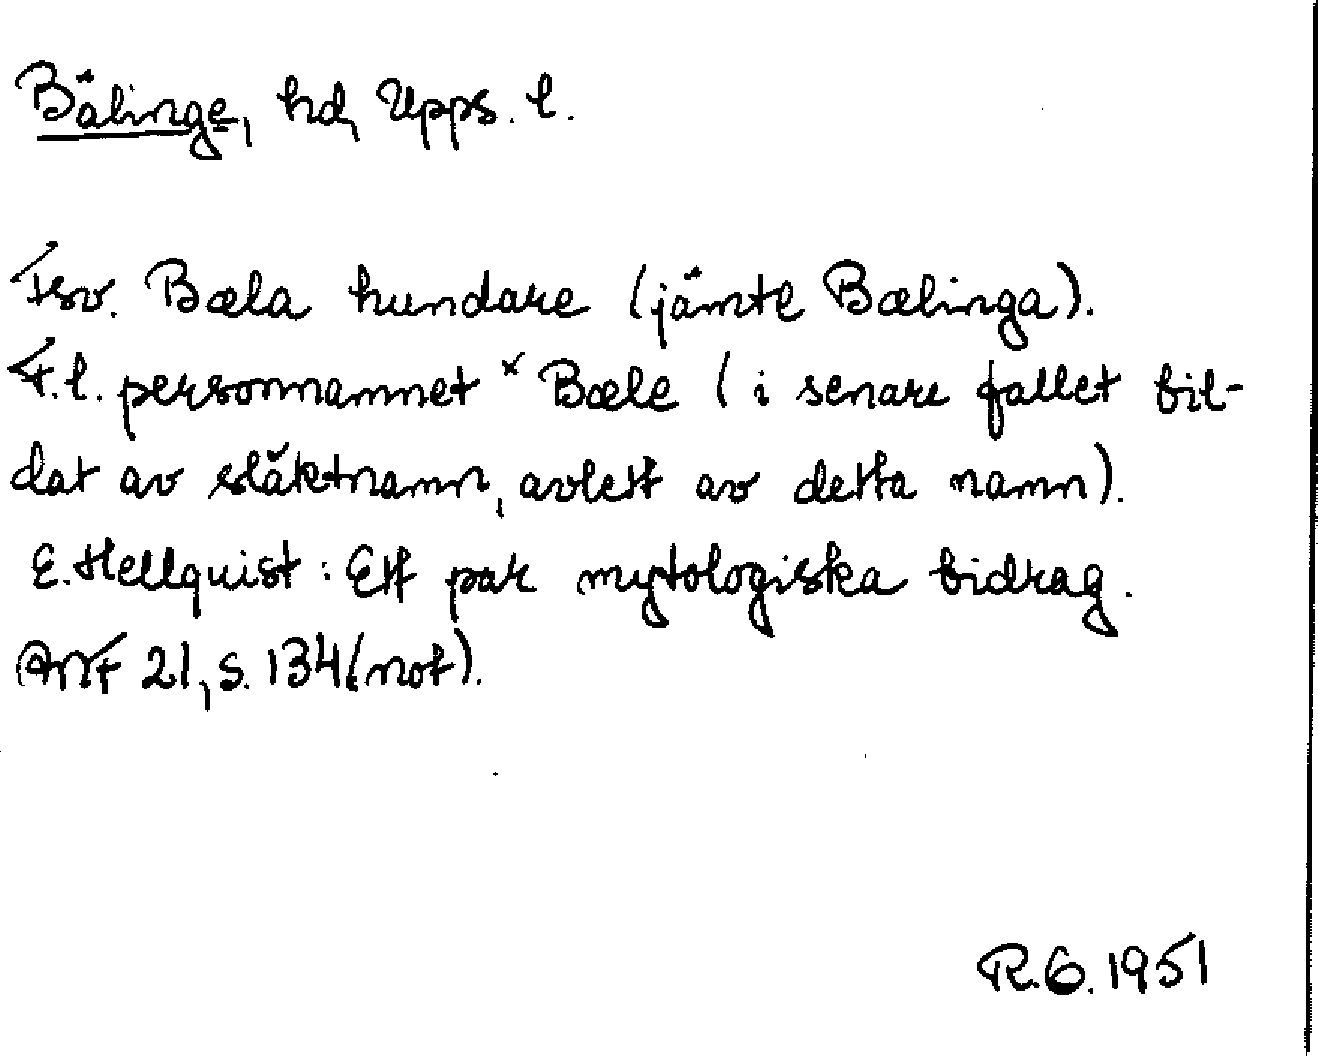 Bälinge, hd, Upps. l.
Fsv. Bæla hundare (jämte Bælinga).
F.l. personnamnet ˣBæle (i senare fallet bil-
dat av släktnamn, avlett av detta namn).
E. Hellquist: Ett par mytologiska bidrag.
ANF 21, s. 134 (not).
R.G. 1951